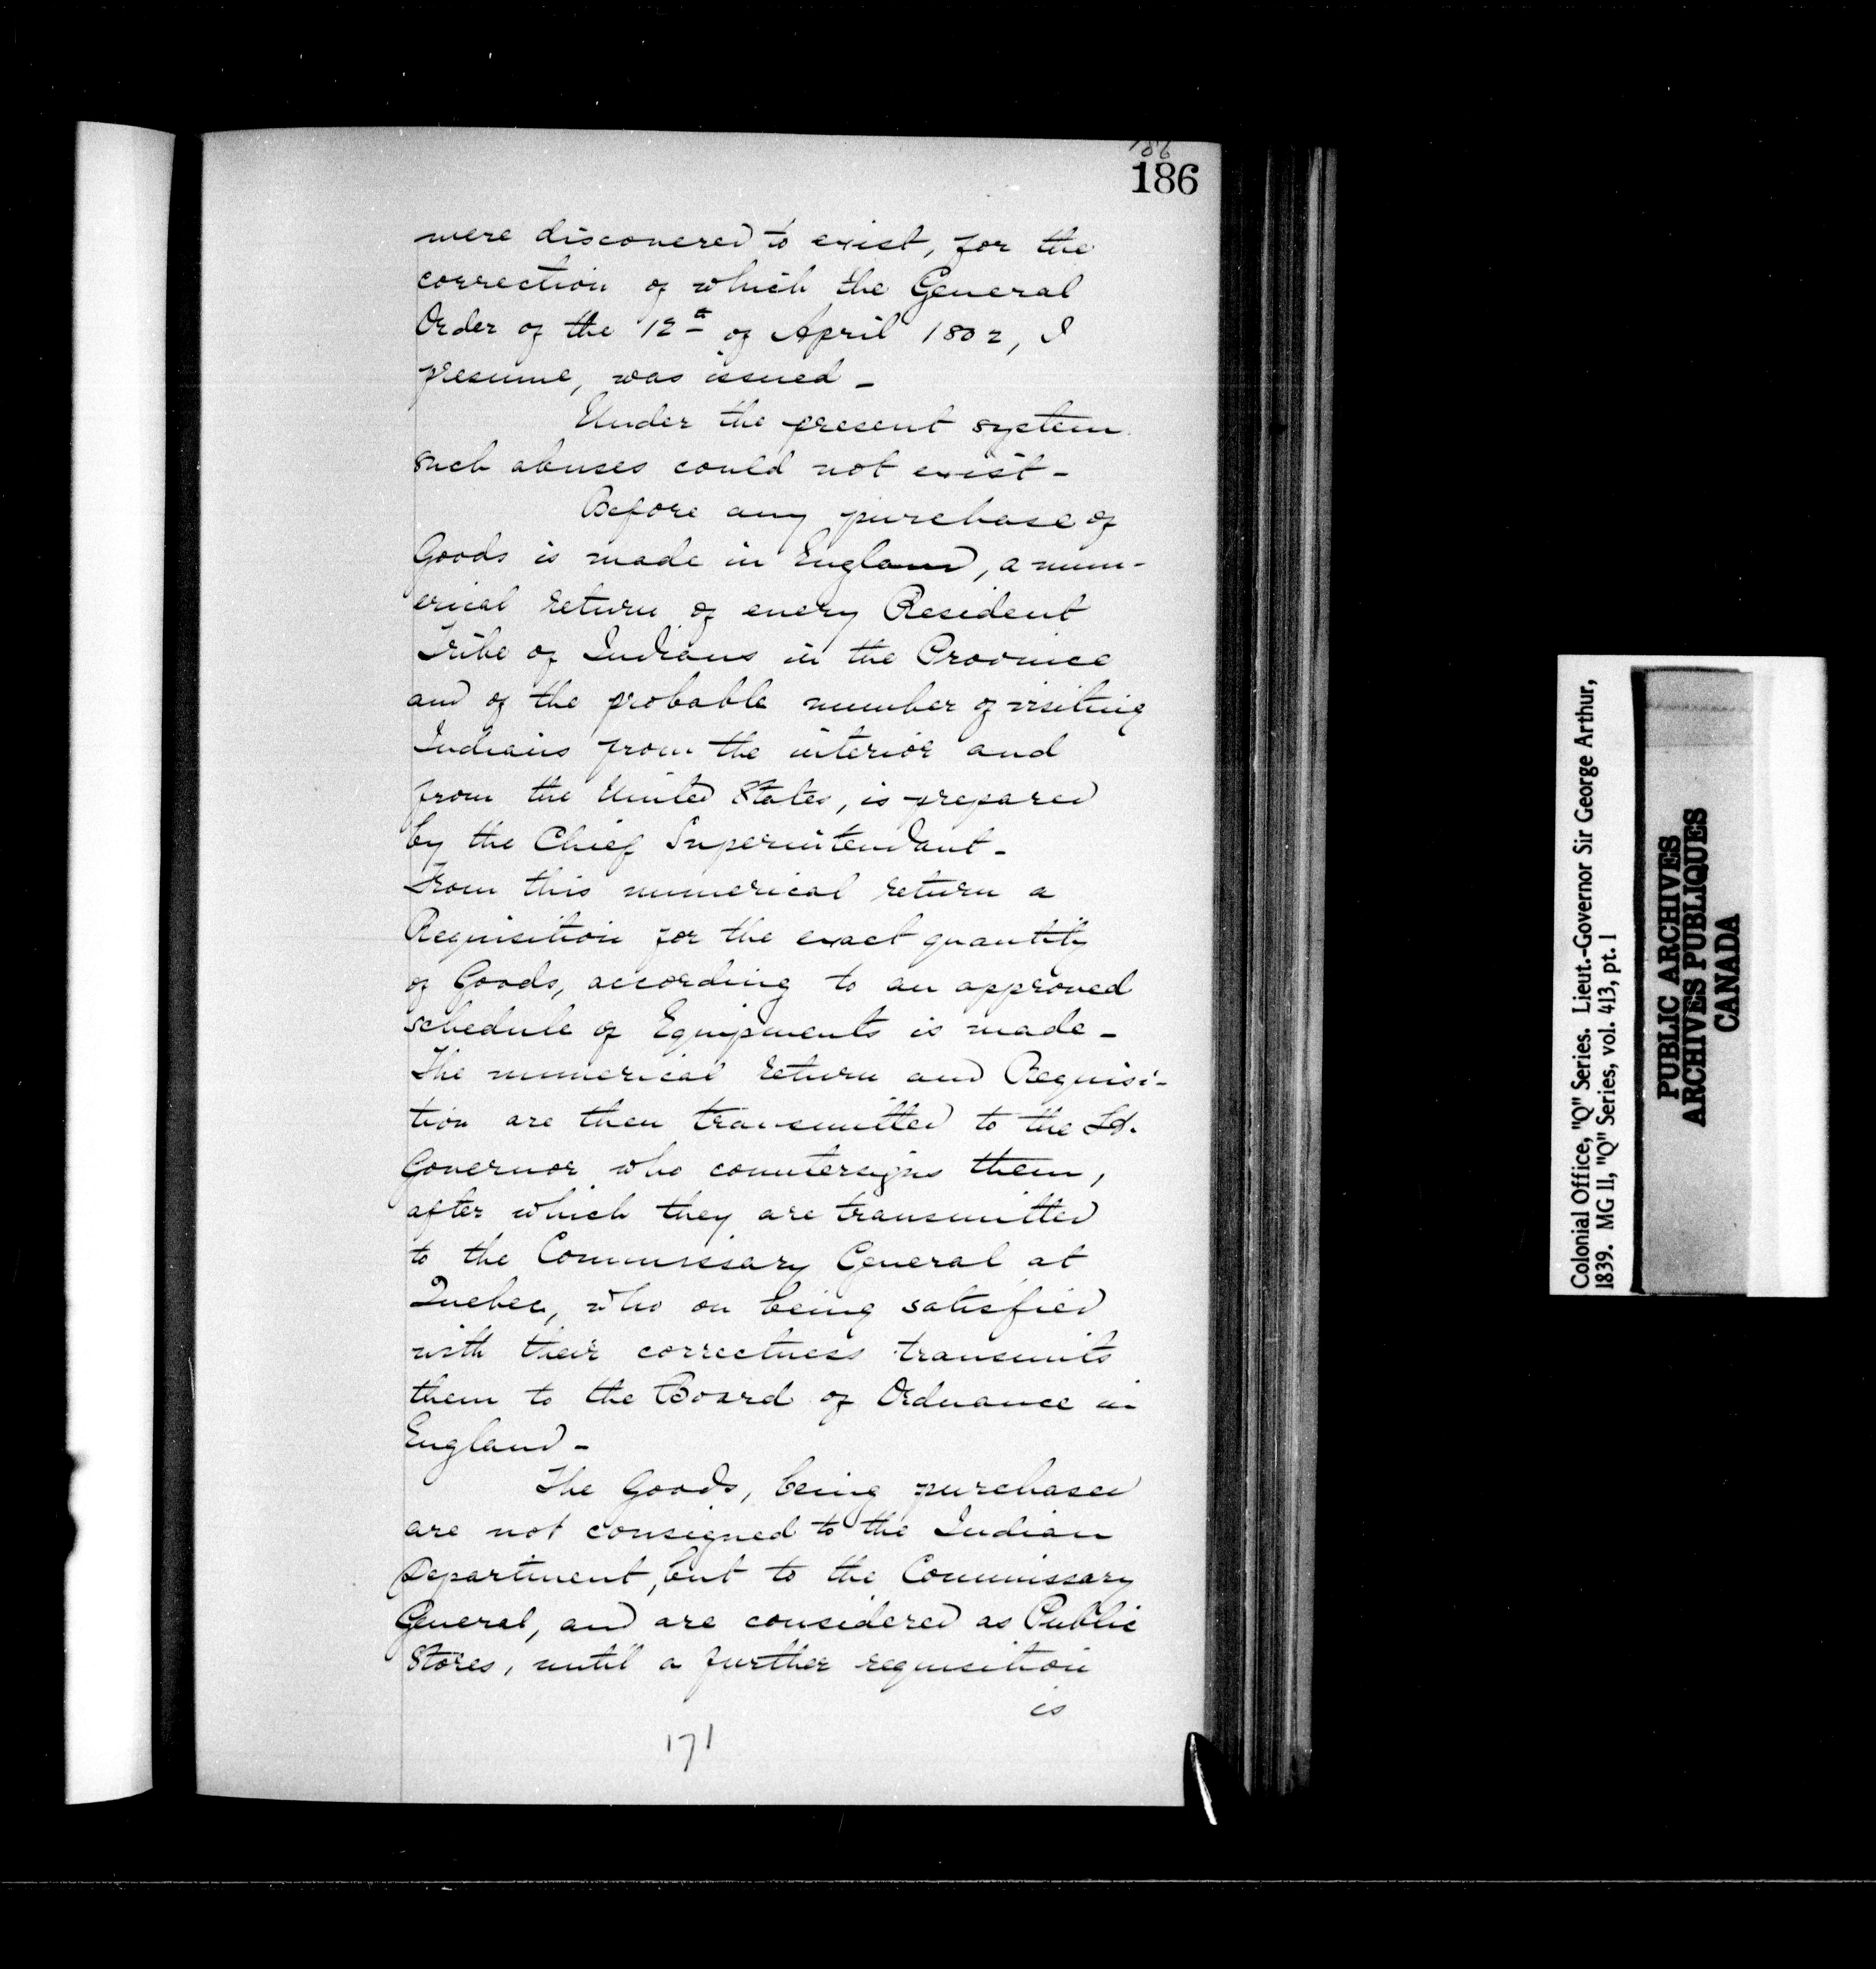 186
186
were discovered to exist, for the
correction of which the General
Order of the 12th of April 1802, I
presume, was issued -
Under the present system
such abuses could not exist -
Before any purchase of
Goods is made in England, a num-
erical return of every Resident
Tribe of Indians in the Province
and of the probable number of visiting
Indians from the interior and
from the United States, is prepared
by the Chief Superintendant -
From this numerical return a
Requisition for the exact quantity
of Goods, according to an approved
schedule of Equipments is made -
The numerical return and Requisi-
tion are then transmitted to the Lt.
Governor who countersigns them,
after which they are transmitted
to the Commissary General at
Quebec, who on being satisfied
with their correctness transmits
them to the Board of Ordnance in
England -
The Goods, being purchased
are not consigned to the Indian
Department, but to the Commissary
General, and are considered as Public
Stores, until a further requisition
is
171
Colonial Office, "Q" Series. Lieut.-Governor Sir George Arthur,
1839. MG 11, "Q" Series, vol. 413, pt. 1
PUBLIC ARCHIVES
ARCHIVES PUBLIQUES
CANADA